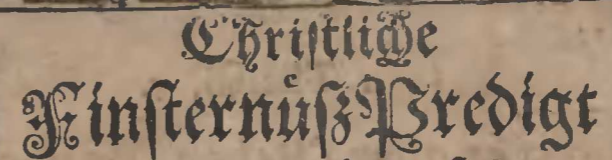 Christliche
Finſternuͤſz Predigt